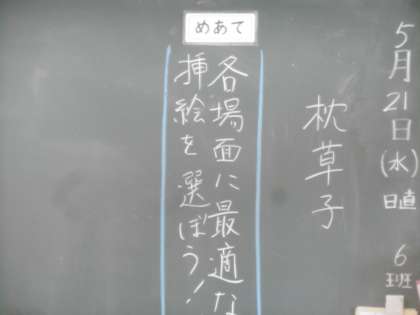 5月21日(水)日直 6班
枕草子
めあて
各場面に最適な
挿絵を選ぼう!